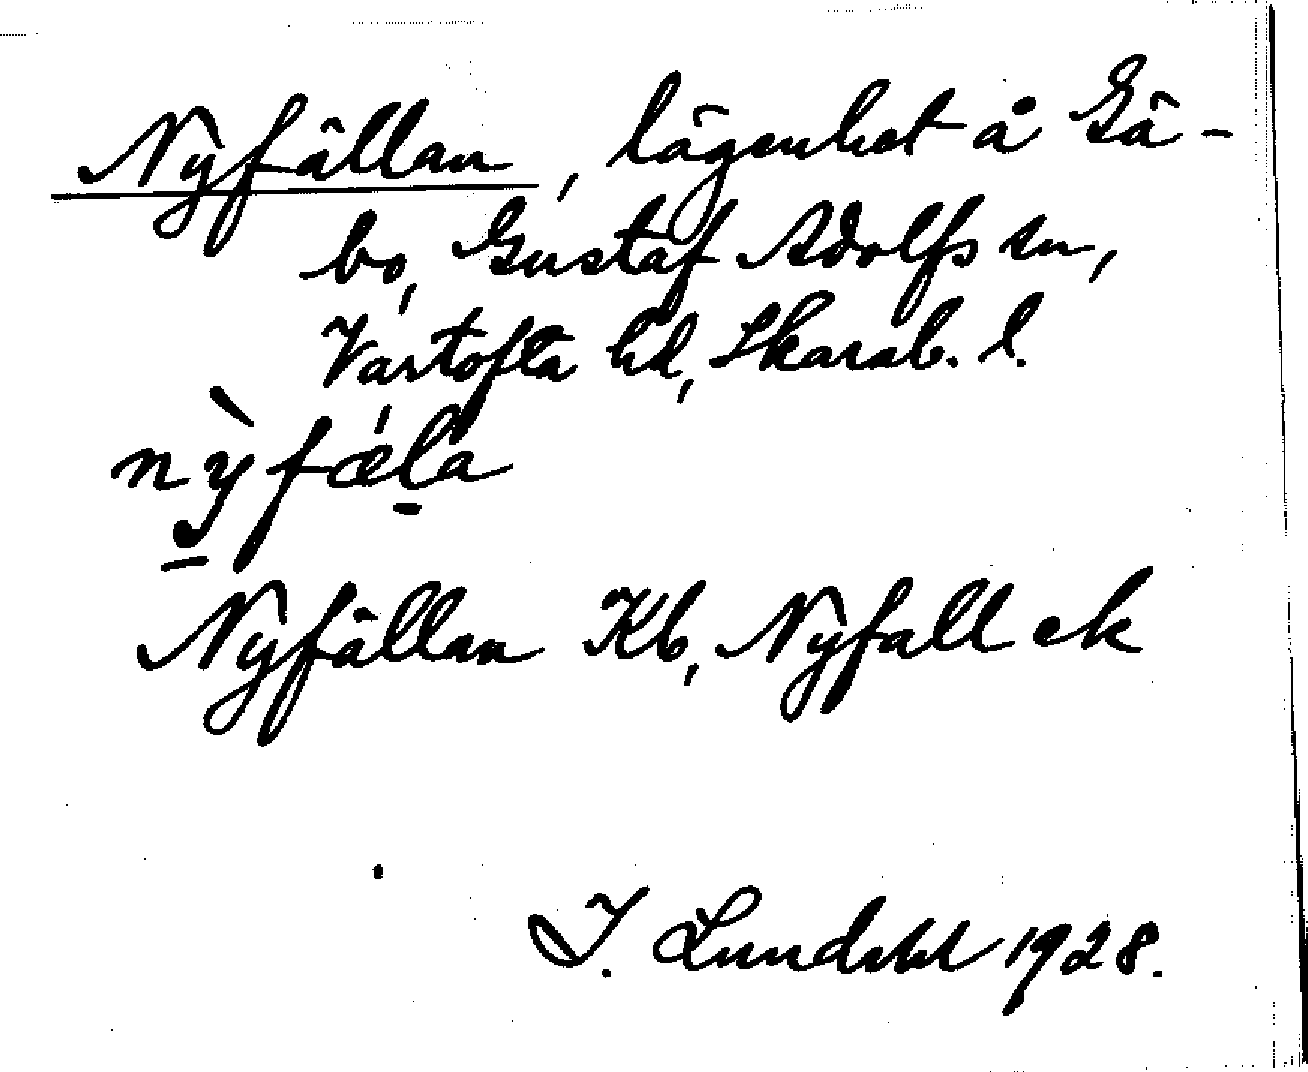 Nyfällan, lägenhet å Gä-
bo, Gustaf Adolfs sn,
Vartofta hd, Skarab. l.
nỳfæ̍la
Nyfällan Kb, Nyfall ek
I. Lundahl 1928.